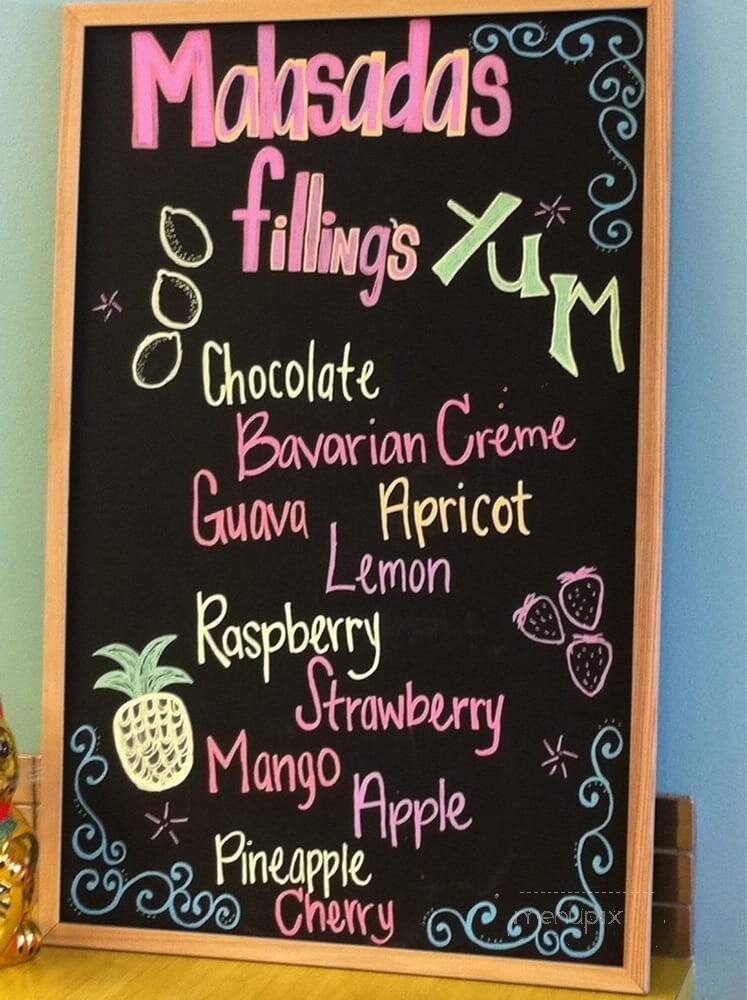 Malasadas
filling's YUM
Chocolate
Bavarian Créme
Guava Apricot
Lemon
Raspberry
Strawberry
Mango
Apple
Pineapple
Cherry
menupix